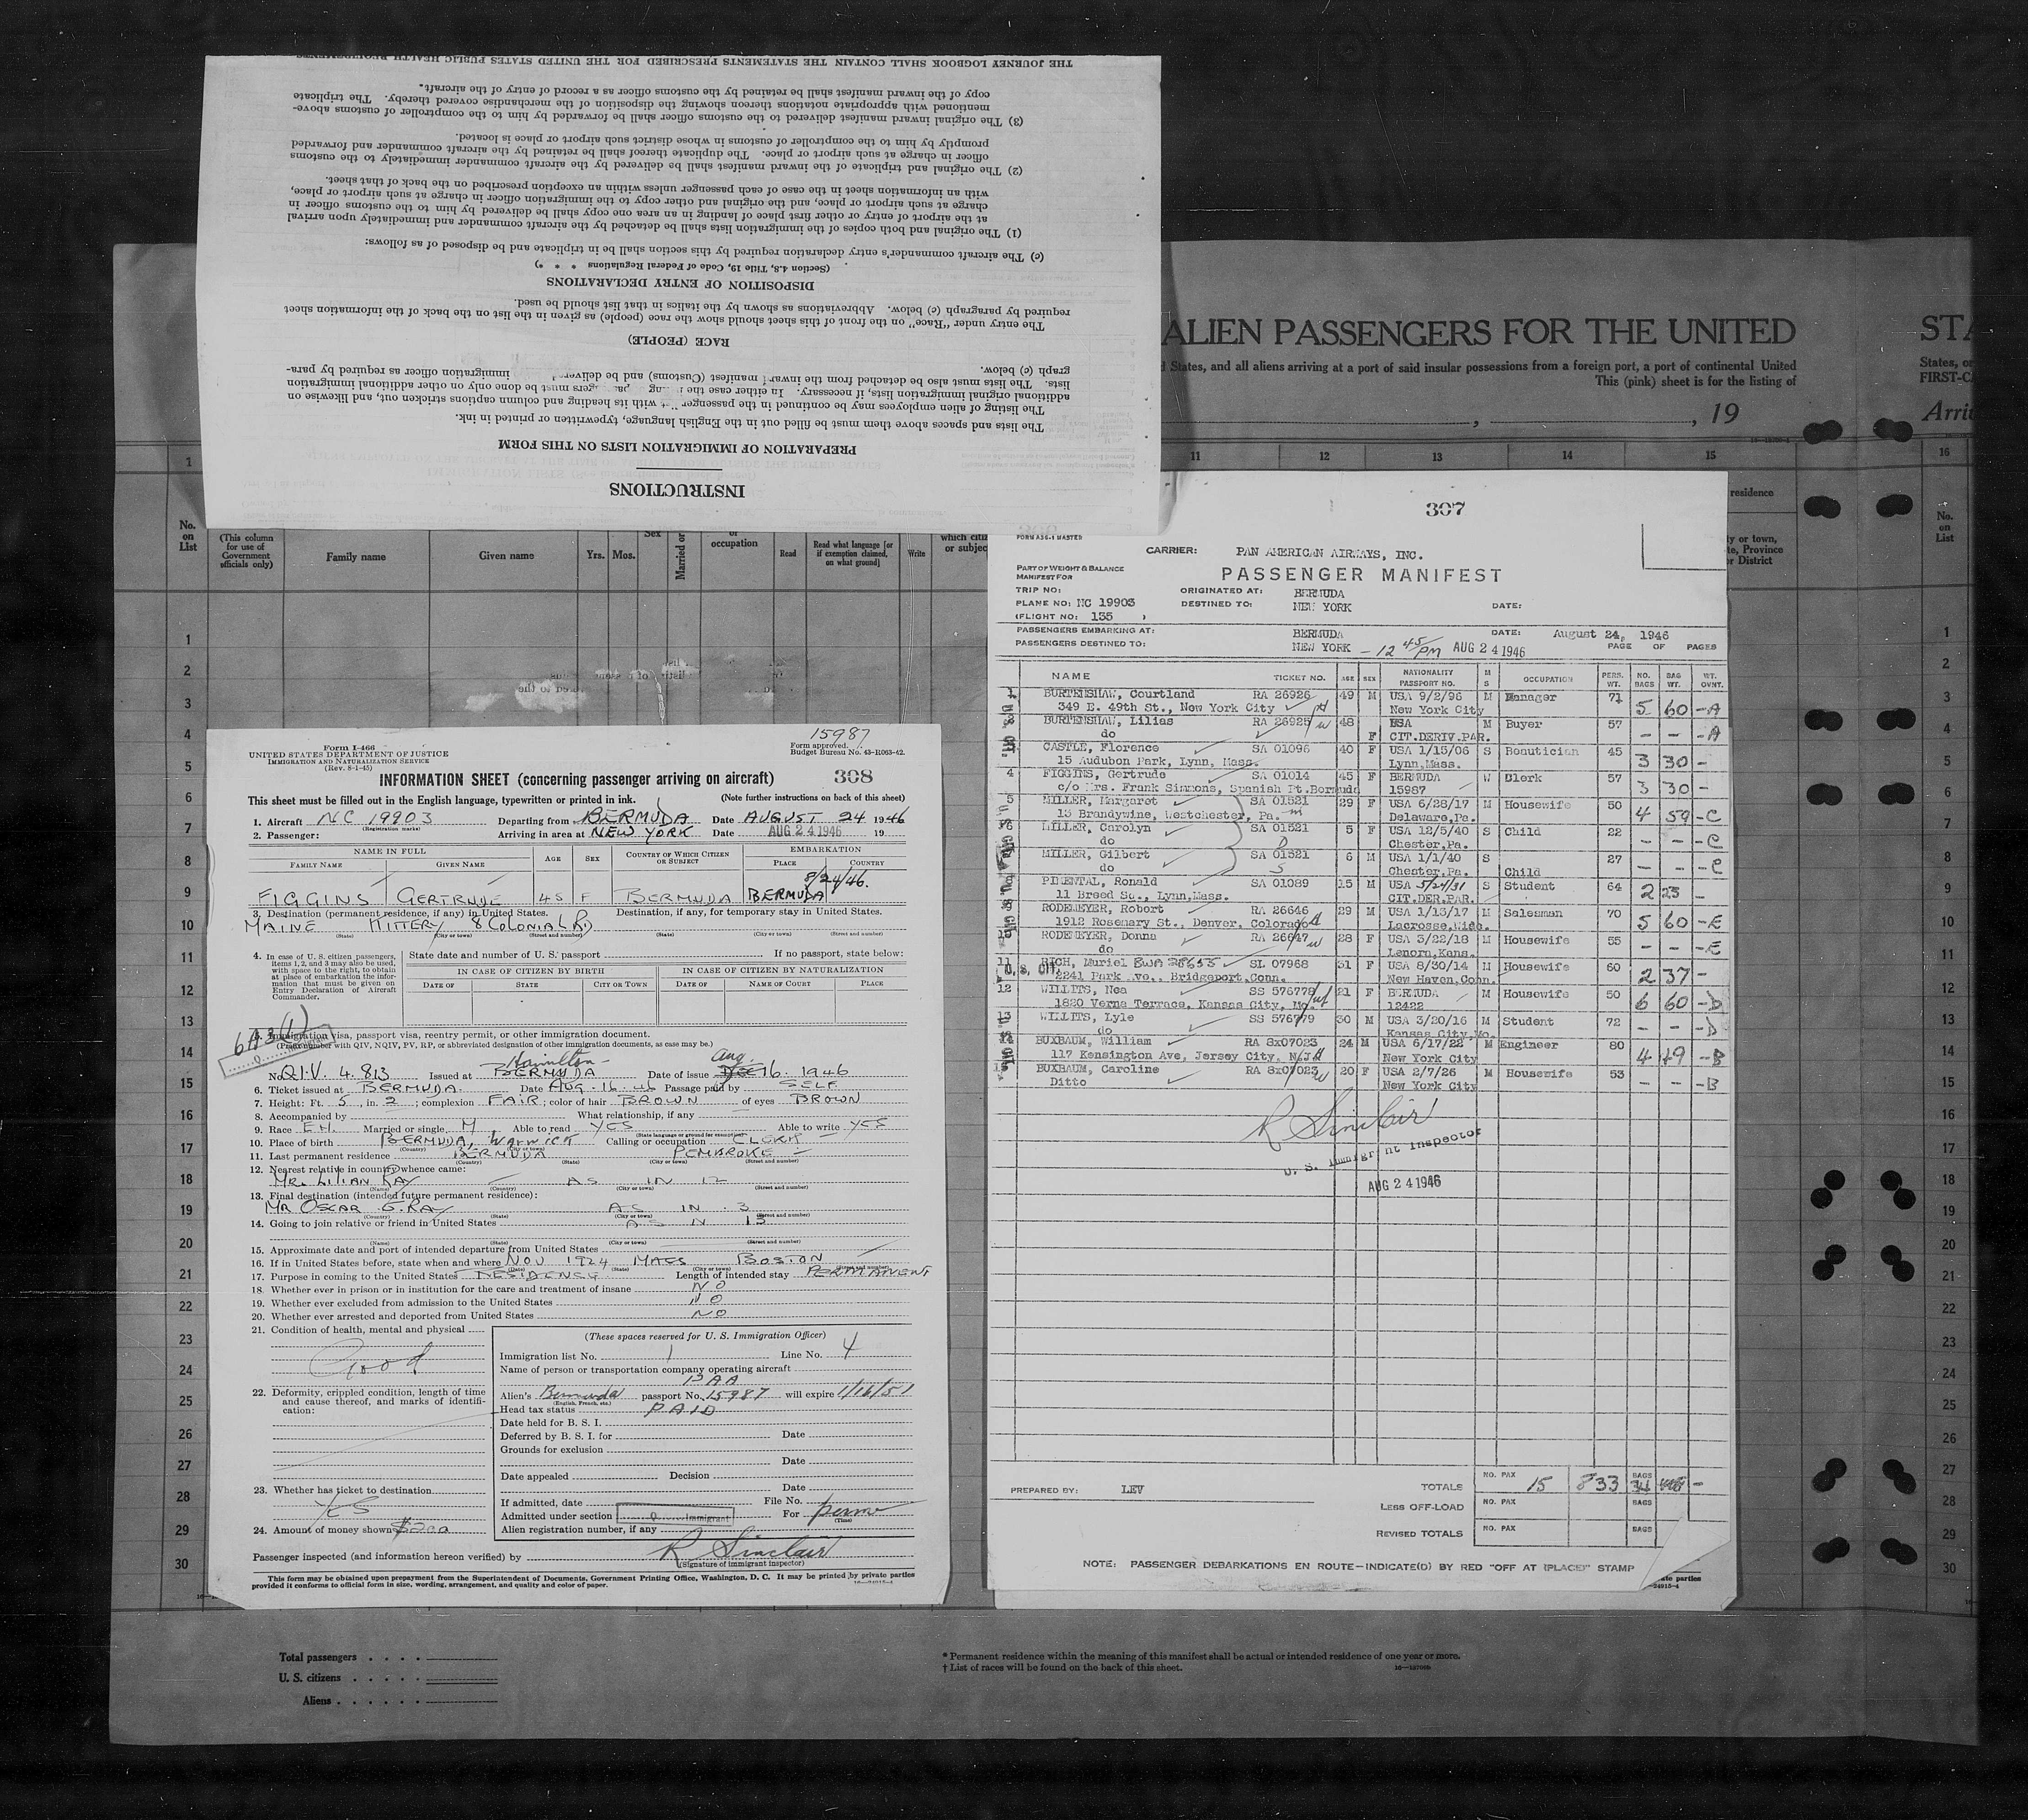 INSTRUCTIONS
PREPARATION OF IMMIGRATION LISTS ON THIS FORM
The lists and spaces above them must be filled out in the English language, typewritten or printed in ink.
The listing of alien employees may be continued in the passenger with its heading and column captions stricken out, and likewise on
additional original immigration lists, if necessary. In either case the must be done only on other additional immigration
lists. The lists must also be detached from the inward manifest (Customs) and be delivered immigration officer as required by para-
graph (c) below.
RACE (PEOPLE)
The entry under "Race" on the front of this sheet should show the race (people) as given in the list on the back of the information sheet
required by paragraph (c) below. Abbreviations as shown by the italics in that list should be used.
DISPOSITION OF ENTRY DECLARATIONS
(Section 4.8, Title 19, Code of Federal Regulations * * *)
(c) The aircraft commander's entry declaration required by this section shall be in triplicate and be disposed of as follows:
(1) The original and both copies of the immigration lists shall be detached by the aircraft commander and immediately upon arrival
at the airport of entry or other first place of landing in an area one copy shall be delivered by him to the customs officer in
charge at such airport or place, and the original and other copy to the immigration officer in charge at such airport or place,
with an information sheet in the case of each passenger unless within an exception prescribed on the back of that sheet.
(2) The original and triplicate of the inward manifest shall be delivered by the aircraft commander immediately to the customs
officer in charge at such airport or place. The duplicate thereof shall be retained by the aircraft commander and forwarded
promptly by him to the comptroller of customs in whose district such airport or place is located.
(3) The original inward manifest delivered to the customs officer shall be forwarded by him to the comptroller of customs above-
mentioned with appropriate notations thereon showing the disposition of the merchandise covered thereby. The triplicate
copy of the inward manifest shall be retained by the customs officer as a record of entry of the aircraft.
THE JOURNEY LOGBOOK SHALL CONTAIN THE STATEMENTS PRESCRIBED FOR THE UNITED STATES PUBLIC HEALTH
ALIEN PASSENGERS FOR THE UNITED STA
States, and all aliens arriving at a port of said insular possessions from a foreign port, a port of continental United States, or
This (pink) sheet is for the listing of FIRST-C
, , 19 Arri
1 11 12 13 14 15 16
No. on List
(This column for use of Government officials only)
Family name Given name Yrs. Mos. Sex Married or occupation Read Read what language [or if exemption claimed, on what ground] Write
15987
Form I-466
UNITED STATES DEPARTMENT OF JUSTICE
IMMIGRATION AND NATURALIZATION SERVICE
(Rev. 8-1-45)
Form approved.
Budget Bureau No. 43-R063-42.
INFORMATION SHEET (concerning passenger arriving on aircraft) 308
This sheet must be filled out in the English language, typewritten or printed in ink. (Note further instructions on back of this sheet)
1. Aircraft NC 19903 Departing from BERMUDA Date AUGUST 24 1946
(Registration marks)
2. Passenger: Arriving in area at NEW YORK Date AUG 24 1946 19
NAME IN FULL AGE SEX COUNTRY OF WHICH CITIZEN OR SUBJECT EMBARKATION
FAMILY NAME GIVEN NAME PLACE COUNTRY
8/24/46.
FIGGINS GERTRUDE 45 F BERMUDA BERMUDA
3. Destination (permanent residence, if any) in United States. Destination, if any, for temporary stay in United States.
MAINE KITTERY 8 COLONIAL RD
(State) (City or town) (Street and number) (State) (City or town) (Street and number)
4. In case of U. S. citizen passengers, items 1, 2, and 3 may also be used, with space to the right, to obtain at place of embarkation the information that must be given on Entry Declaration of Aircraft Commander.
State date and number of U. S. passport If no passport, state below:
IN CASE OF CITIZEN BY BIRTH IN CASE OF CITIZEN BY NATURALIZATION
DATE OF STATE CITY OR TOWN DATE OF NAME OF COURT PLACE
6A3(1)
5. Immigration visa, passport visa, reentry permit, or other immigration document.
(Prefix number with QIV, NQIV, PV, RP, or abbreviated designation of other immigration documents, as case may be.)
Hamilton Aug.
No. QIV. 4.813 Issued at BERMUDA Date of issue 16. 1946
6. Ticket issued at BERMUDA Date AUG-16-46 Passage paid by SELF
7. Height: Ft. 5, in. 2; complexion FAIR; color of hair BROWN of eyes BROWN
8. Accompanied by What relationship, if any
9. Race Married or single, M Able to read YES Able to write YES
(State language or ground for exemption)
10. Place of birth BERMUDA, WARWICK Calling or occupation CLERK
11. Last permanent residence BERMUDA PEMBROKE
12. Nearest relative in country whence came:
MR. LILIAN RAY AS IN 12
13. Final destination (intended future permanent residence):
MR OSCAR G. RAY AS IN 3
14. Going to join relative or friend in United States AS N 13
15. Approximate date and port of intended departure from United States
16. If in United States before, state when and where NOV 1924 MASS BOSTON
17. Purpose in coming to the United States RESIDENCE Length of intended stay PERMANENT
18. Whether ever in prison or in institution for the care and treatment of insane NO
19. Whether ever excluded from admission to the United States NO
20. Whether ever arrested and deported from United States NO
21. Condition of health, mental and physical
Good
22. Deformity, crippled condition, length of time and cause thereof, and marks of identification:
23. Whether has ticket to destination
YES
24. Amount of money shown $200
(These spaces reserved for U. S. Immigration Officer)
Immigration list No. 1 Line No. 4
Name of person or transportation company operating aircraft
PAA
Alien's Bermuda passport No. 15987 will expire 1/16/51
(English, French, etc.)
Head tax status PAID
Date held for B. S. I.
Deferred by B. S. I. for Date
Grounds for exclusion
Date
Date appealed Decision
Date
If admitted, date File No.
Admitted under section Immigrant For perm
(Time)
Alien registration number, if any
Passenger inspected (and information hereon verified) by R Sinclair
(Signature of immigrant inspector)
This form may be obtained upon prepayment from the Superintendent of Documents, Government Printing Office, Washington, D. C. It may be printed by private parties
provided it conforms to official form in size, wording, arrangement, and quality and color of paper.
16-24915-4
307
FORM A36-1 MASTER
CARRIER: PAN AMERICAN AIRWAYS, INC.
PART OF WEIGHT & BALANCE
MANIFEST FOR
PASSENGER MANIFEST
TRIP NO: ORIGINATED AT: BERMUDA
PLANE NO: NC 19903 DESTINED TO: NEW YORK DATE:
(FLIGHT NO: 135 )
PASSENGERS EMBARKING AT: BERMUDA DATE: August 24, 1946
PASSENGERS DESTINED TO: NEW YORK - 12 45/PM AUG 24 1946 PAGE OF PAGES
NAME TICKET NO. AGE SEX NATIONALITY PASSPORT NO. M S OCCUPATION PERS. WT. NO. BAGS BAG WT. WT. OVNT.
BURTENSHAW, Courtland RA 26926 49 M USA 9/2/96 M Manager 71 5 60 -A
349 E. 49th St., New York City New York City
BURTENSHAW, Lilias RA 26925 48 F USA M Buyer 57 - - -A
do CIT.DERIV.PAR.
CASTLE, Florence SA 01096 40 F USA 1/15/06 S Beautician 45 3 30 -
15 Audubon Park, Lynn, Mass. Lynn,Mass.
4 FIGGINS, Gertrude SA 01014 45 F BERMUDA W Clerk 57 3 30 -
c/o Mrs. Frank Simmons, Spanish Pt.Bermuda 15987
5 MILLER, Margaret SA 01521 29 F USA 6/28/17 M Housewife 50 4 59 -C
13 Brandywine, Westchester, Pa. m Delaware,Pa.
6 MILLER, Carolyn SA 01521 5 F USA 12/5/40 S Child 22 - - -C
do D Chester,Pa.
MILLER, Gilbert SA 01521 6 M USA 1/1/40 S Child 27 - - -C
do S Chester,Pa.
8 PIMENTAL, Ronald SA 01089 15 M USA 5/24/31 S Student 64 2 23 -
11 Breed Sq., Lynn,Mass. CIT.DER.PAR.
9 RODEMEYER, Robert RA 26646 29 M USA 1/13/17 M Salesman 70 5 60 -E
1912 Rosemary St., Denver, Colorado Lacrosse,Wisc.
RODEMEYER, Donna RA 26647 28 F USA 3/22/18 M Housewife 55 - - -E
do Lenora,Kans.
11 RICH, Muriel BWA 28653 SL 07968 31 F USA 8/30/14 M Housewife 60 2 37 -
U.S. CIT. 2241 Park Ave., Bridgeport,Conn. New Haven,Conn.
12 WILLITS, Nea SS 576778 21 F BERMUDA M Housewife 50 6 60 -D
1820 Verna Terrace, Kansas City, Mo. 12422
13 WILLITS, Lyle SS 576779 30 M USA 3/20/16 M Student 72 - - -D
do Kansas City,Mo.
BUXBAUM, William RA Sx07023 24 M USA 6/17/22 M Engineer 80 4 49 -B
117 Kensington Ave, Jersey City, N.J. New York City
BUXBAUM, Caroline RA Sx07023 20 F USA 2/7/26 M Housewife 53 - - -B
Ditto New York City
R Sinclair
U. S. Immigrant Inspector
AUG 24 1946
PREPARED BY: LEV
TOTALS NO. PAX 15 833 BAGS 34 -
LESS OFF-LOAD NO. PAX BAGS
REVISED TOTALS NO. PAX BAGS
NOTE: PASSENGER DEBARKATIONS EN ROUTE—INDICATE(D) BY RED "OFF AT (PLACE)" STAMP
Total passengers
U. S. citizens
Aliens
* Permanent residence within the meaning of this manifest shall be actual or intended residence of one year or more.
† List of races will be found on the back of this sheet.